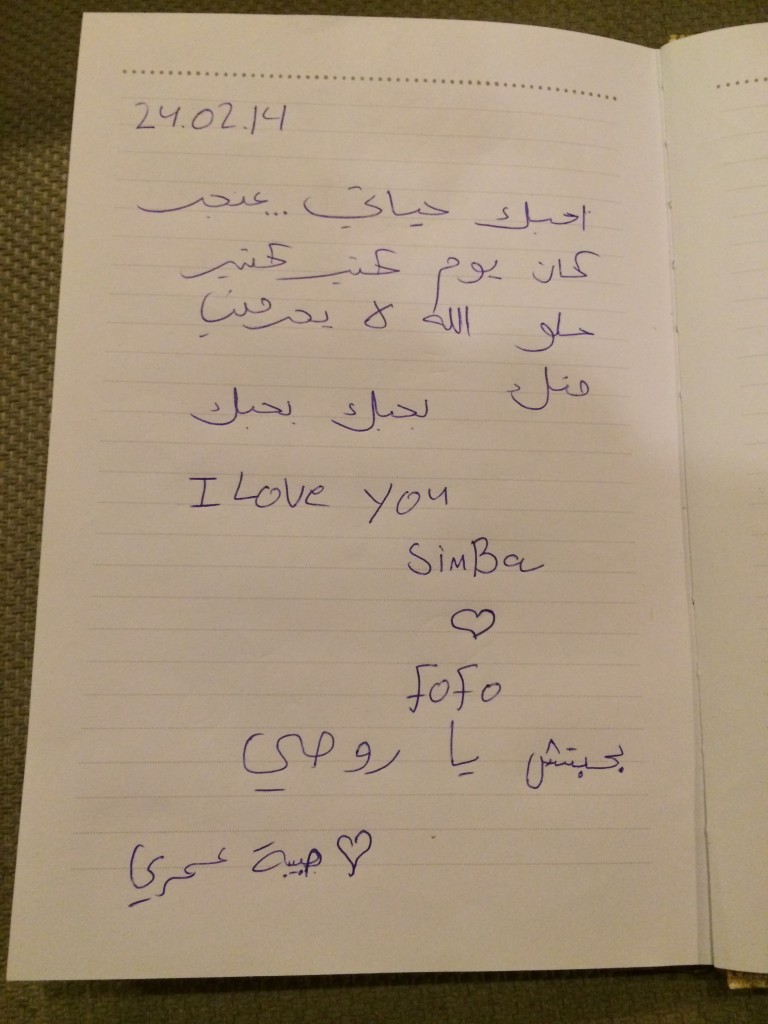 24.02.14
احبك حياتي ...عنجد
كان يوم كتير كتير
حلو الله لا يحرمني
منك
بحبك بحبك
I Love you
SimBa
♡
FoFo
بحبتش يا روحي
♡ حبيبة عمري